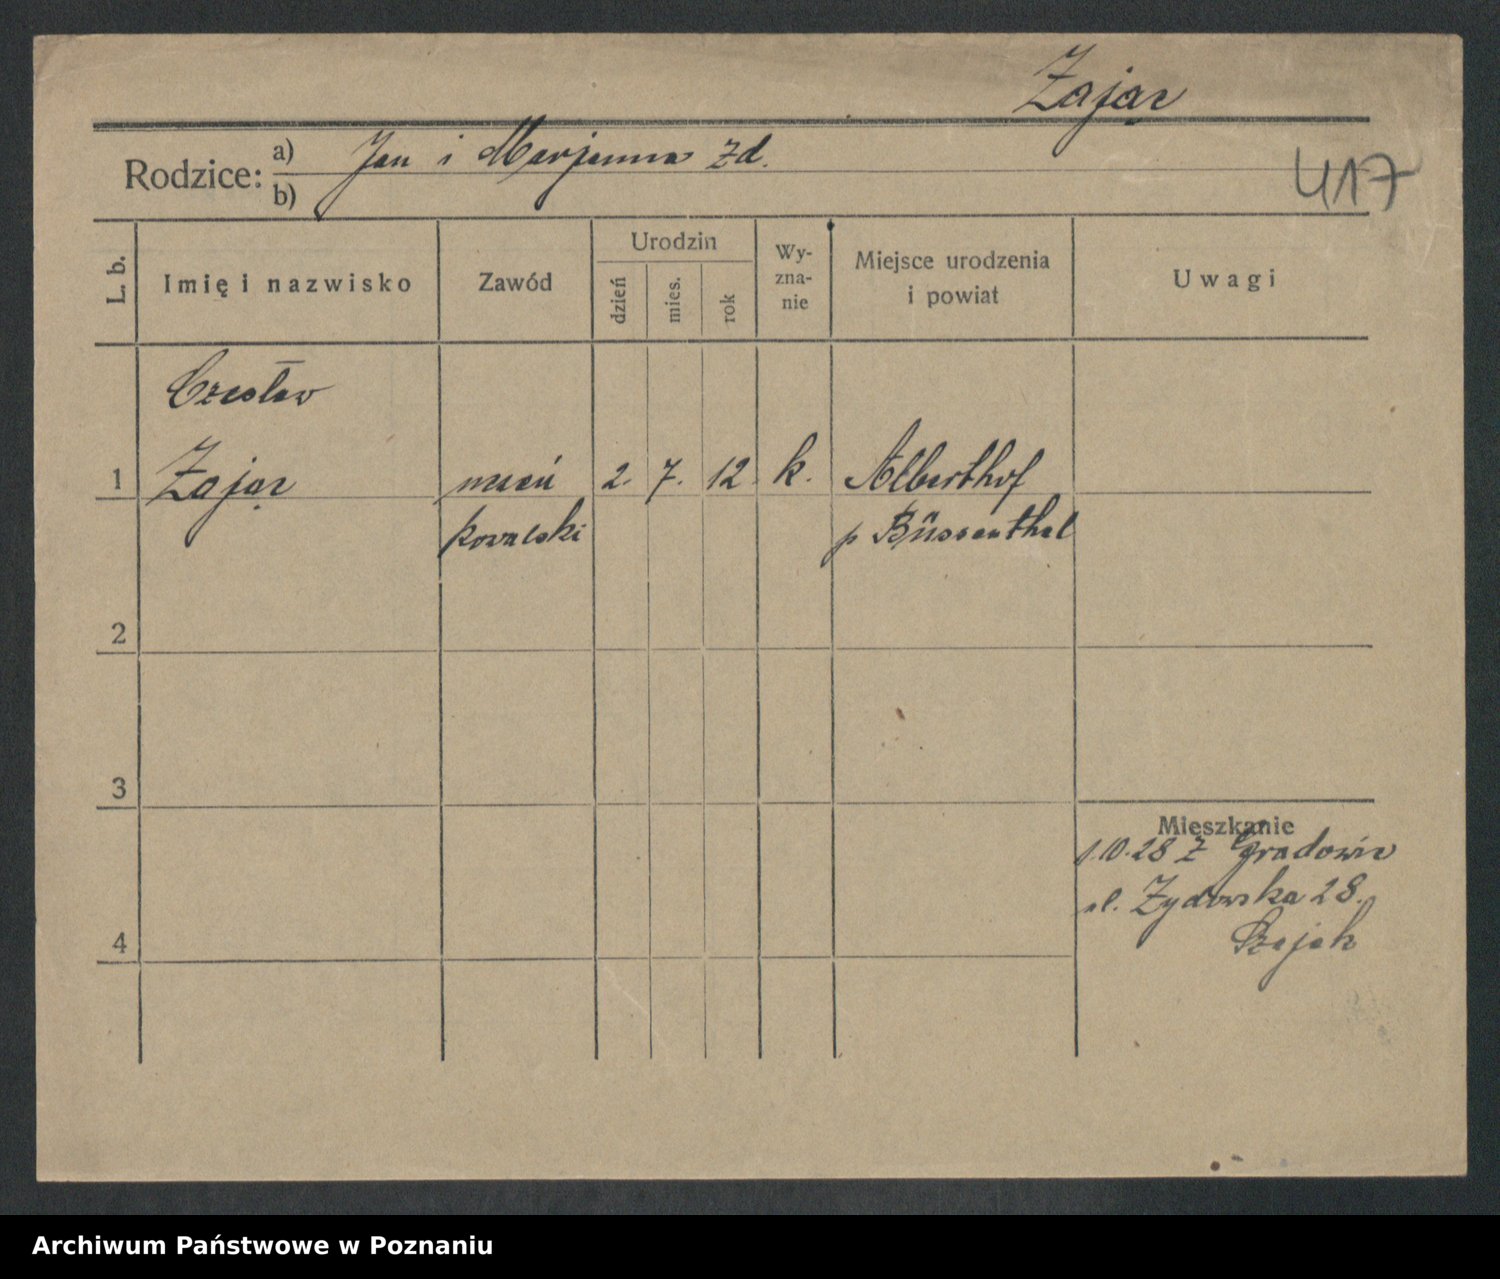 Zając
Rodzice: a) Jan i Marjanna Zd.
b)
417
L. b.
Imię i nazwisko
Zawód
Urodzin
dzień
mies.
rok
Wy-
zna-
nie
Miejsce urodzenia
i powiat
Uwagi
Czesław
1 Zając uczeń 2. 7. 12 k. Alberthof
kowalski p Büssenthal
2
3
Mieszkanie
1.10.28 z Gradowic
ul. Żydowska 28.
4
Archiwum Państwowe w Poznaniu